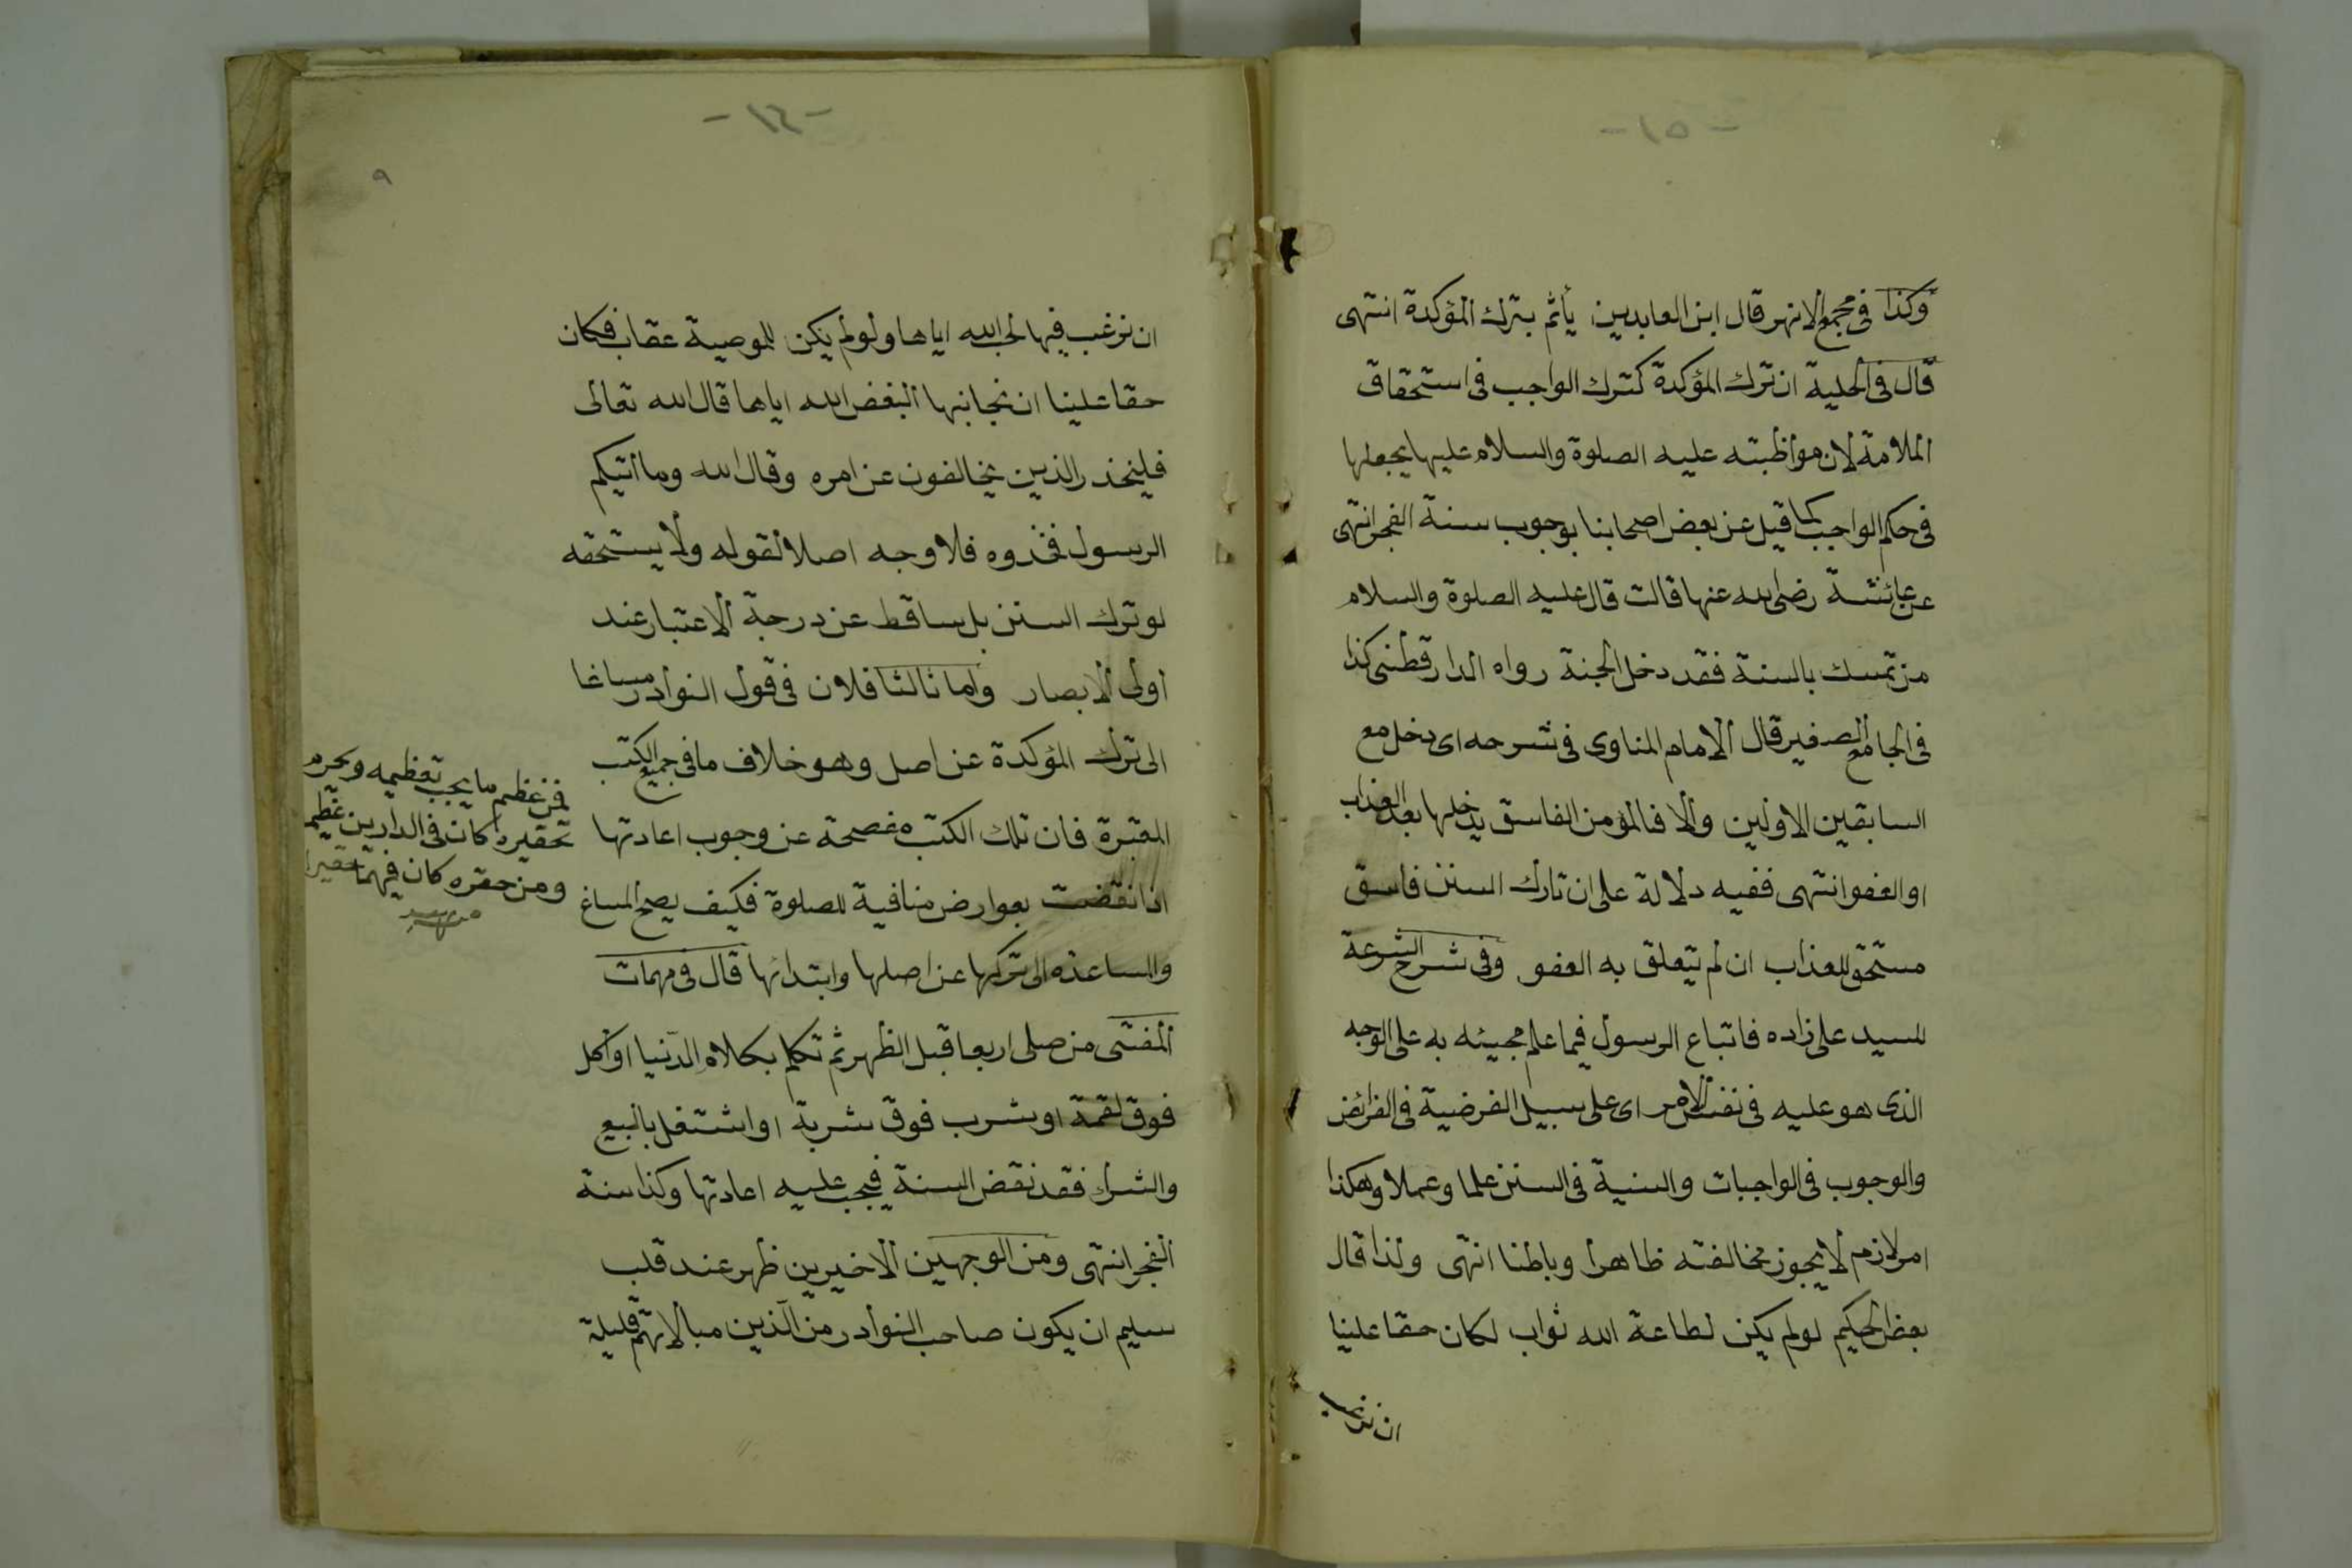 -١٥-
وكذا فى مجمع الانهر قال ابن العابدين يأثم بترك المؤكدة انتهى
قال فى الحلية ان ترك المؤكدة كترك الواجب فى استحقاق
الملامة لان مواظبته عليه الصلوة والسلام عليها يجعلها
فى حكم الواجب كما قيل عن بعض اصحابنا بوجوب سنة الفجر انتهى
عن عائشة رضى الله عنها قالت قال عليه الصلوة والسلام
من تمسك بالسنة فقد دخل الجنة رواه الدارقطنى كذا
فى الجامع الصغير قال الامام المناوى فى شرحه اى دخل مع
السابقين الاولين والا فالمؤمن الفاسق يدخلها بعد العذاب
او العفو انتهى ففيه دلالة على ان تارك السنن فاسق
مستحق للعذاب ان لم يتعلق به العفو وفى شرح الشرعة
للسيد على زاده فاتباع الرسول فيما علم مجيئه به على الوجه
الذى هو عليه فى نفس الامر اى على سبيل الفرضية فى الفرائض
والوجوب فى الواجبات والسنية فى السنن علما وعملا وهكذا
امر لازم لا يجوز مخالفته ظاهرا وباطنا انتهى ولذا قال
بعض الحكيم لو لم يكن لطاعة الله ثواب لكان حقا علينا
ان نرغب
-١٦-
٩
ان نرغب فيها لحب الله اياها ولو لم يكن للموصية عقاب فكان
حقا علينا ان نجانبها البغض الله اياها قال الله تعالى
فليحذر الذين يخالفون عن امره وقال الله وما اتيكم
الرسول فخذوه فلا وجه اصلا لقوله ولا يستحقه
لو ترك السنن بل ساقط عن درجة الاعتبار عند
اولى الابصار واما ثالثا فلان فى قول النوادر مساغا
الى ترك المؤكدة عن اصل وهو خلاف ما فى جميع الكتب
المعتبرة فان تلك الكتب مفصحة عن وجوب اعادتها
اذا نقضت بعوارض منافية للصلوة فكيف يصح المساغ
والمساعدة الى تركها عن اصلها وابتدائها قال فى مهمات
المفتى من صلى اربعا قبل الظهر ثم تكلم بكلام الدنيا او اكل
فوق لقمة او شرب فوق شربة او اشتغل بالبيع
والشراء فقد نقض السنة فيجب عليه اعادتها وكذا سنة
الفجر انتهى ومن الوجهين الاخيرين ظهر عند قلب
سليم ان يكون صاحب النوادر من الذين مبالاتهم قليلة
فمن عظم ما يجب تعظيمه ويحرم
تحقيره كان فى الدارين عظيما
ومن حقره كان فيهما حقيرا